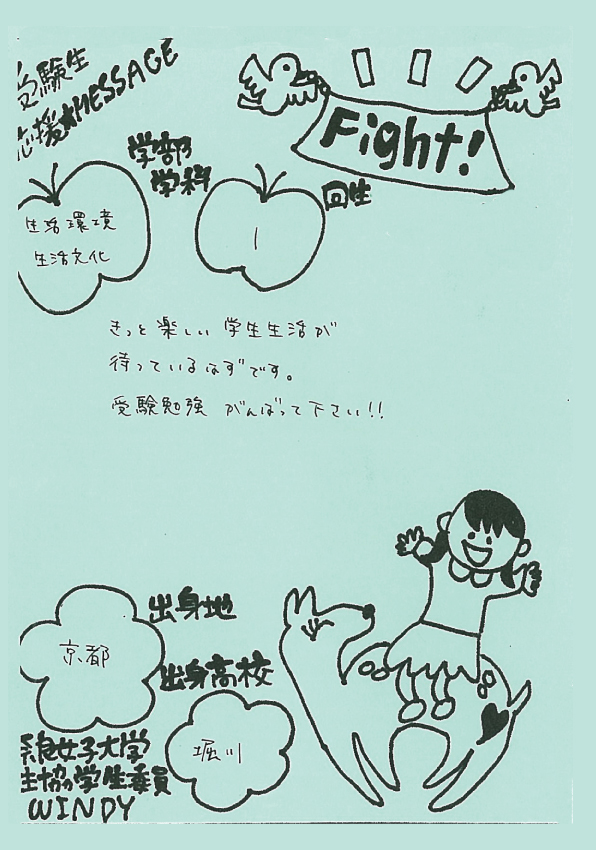 受験生
応援★MESSAGE
Fight!
学部
学科
生活環境
生活文化
回生
1
きっと楽しい 学生生活が
待っているはずです。
受験勉強 がんばって下さい!!
出身地
京都
出身高校
堀川
奈良女子大学
生協の学生委員
WINDY